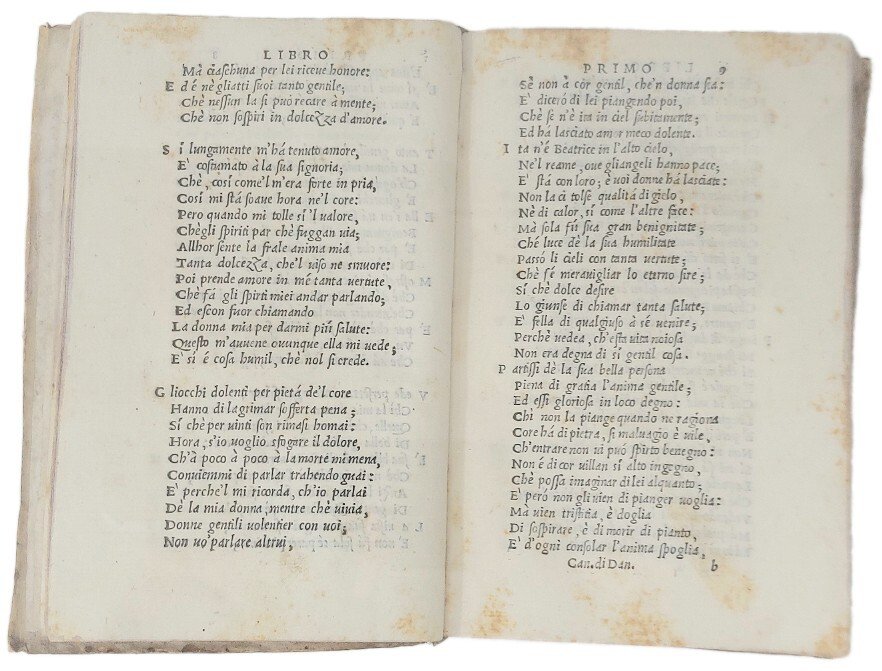 LIBRO
Mà ciaschuna per lei riceue honore:
E d é nègliatti suoi tanto gentile;
Chè nessun la si può recare à mente;
Chè non sospiri in dolcezza d'amore.
S í lungamente m'há tenuto amore,
E' costumato à la sua signoria;
Chè, cosí come'l m'era forte in pria,
Cosi mi stá soaue hora ne'l core:
Pero quando mi tolle sí 'l ualore,
Chègli spiriti par chè fuggan uia;
Allhor sente la frale anima mia
Tanta dolcezza, che'l uiso ne smuore:
Poi prende amore in mé tanta uertute,
Chè fá gli spirti miei andar parlando;
Ed escon fuor chiamando
La donna mia per darmi piú salute:
Questo m'auuene ouunque ella mi uede;
E' sí é cosa humil, chè nol si crede.
G liocchi dolenti per pietá de'l core
Hanno di lagrimar sofferta pena;
Sí chè per uinti son rimasi homai:
Hora, s'io uoglio sfogare il dolore,
Ch'à poco à poco à la morte mi mena,
Conuiemmi di parlar trahendo guai:
E' perche'l mi ricorda, ch'io parlai
Dè la mia donna, mentre chè uiuia,
Donne gentili uolentier con uoi;
Non uo' parlare altrui,
PRIMO 9
Sè non à cor gentil, che'n donna sia:
E' diceró di lei piangendo poi,
Chè se n'è ita in ciel subitamente;
Ed há lasciato amor meco dolente.
I ta n'é Beatrice in l'alto cielo,
Ne'l reame, oue gliangeli hanno pace;
E' stá con loro; è uoi donne há lasciate:
Non la ci tolse qualitá di gielo,
Nè di calor, sí come l'altre face:
Mà sola fú sua gran benignitate;
Ché luce dè la sua humilitate
Passó li cieli con tanta uertute;
Chè fé merauigliar lo eterno sire;
Sí chè dolce desire
Lo giunse di chiamar tanta salute;
E' fella di qualgiuso à sé uenire;
Perchè uedea, ch'esta uita noiosa
Non era degna di sí gentil cosa.
P artissi dè la sua bella persona
Piena di gratia l'anima gentile;
Ed essi gloriosa in loco degno:
Chi non la piange quando ne ragiona
Core há di pietra, si maluagio è uile,
Ch'entrare non ui puó spirto benegno:
Non é di cor uillan sí alto ingegno,
Chè possa imaginar di lei alquanto;
E' peró non gli uien di pianger uoglia:
Mà uien tristitia, è doglia
Di sospirare, è di morir di pianto,
E' d'ogni consolar l'anima spoglia,
Can. di Dan. b